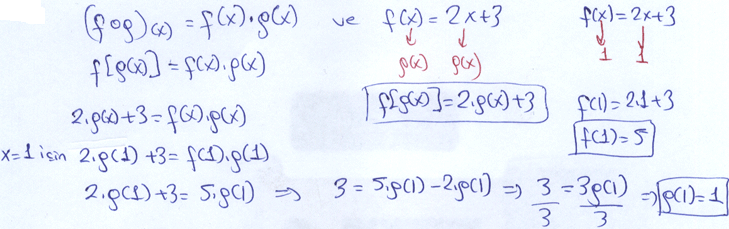 (fog)(x) = f(x).g(x) ve f(x) = 2x+3 f(x) = 2x+3
↓ ↓ ↓ ↓
g(x) g(x) 1 1
f[g(x)] = f(x).g(x)
f[g(x)] = 2.g(x)+3 f(1) = 2.1+3
2.g(x)+3 = f(x).g(x)
f(1) = 5
x=1 için 2.g(1)+3 = f(1).g(1)
2.g(1)+3 = 5.g(1) ⇒ 3 = 5.g(1)-2.g(1) ⇒ 3/3 = 3g(1)/3 ⇒ g(1) = 1